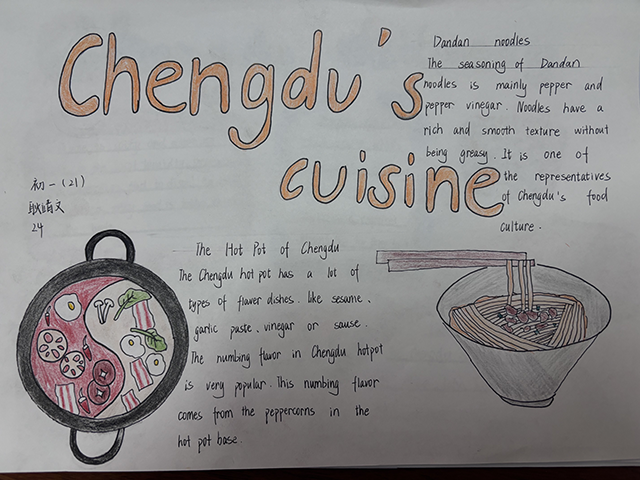 Chengdu's
cuisine
Dandan noodles
The seasoning of Dandan
noodles is mainly pepper and
pepper vinegar. Noodles have a
rich and smooth texture without
being greasy. It is one of
the representatives
of Chengdu's food
culture.
初一(21)
耿晴文
24
The Hot Pot of Chengdu
The Chengdu hot pot has a lot of
types of flaver dishes. like sesame、
garlic paste、vinegar or sause.
The numbing flavor in Chengdu hotpot
is very popular. This numbing flavor
comes from the peppercorns in the
hot pot base.